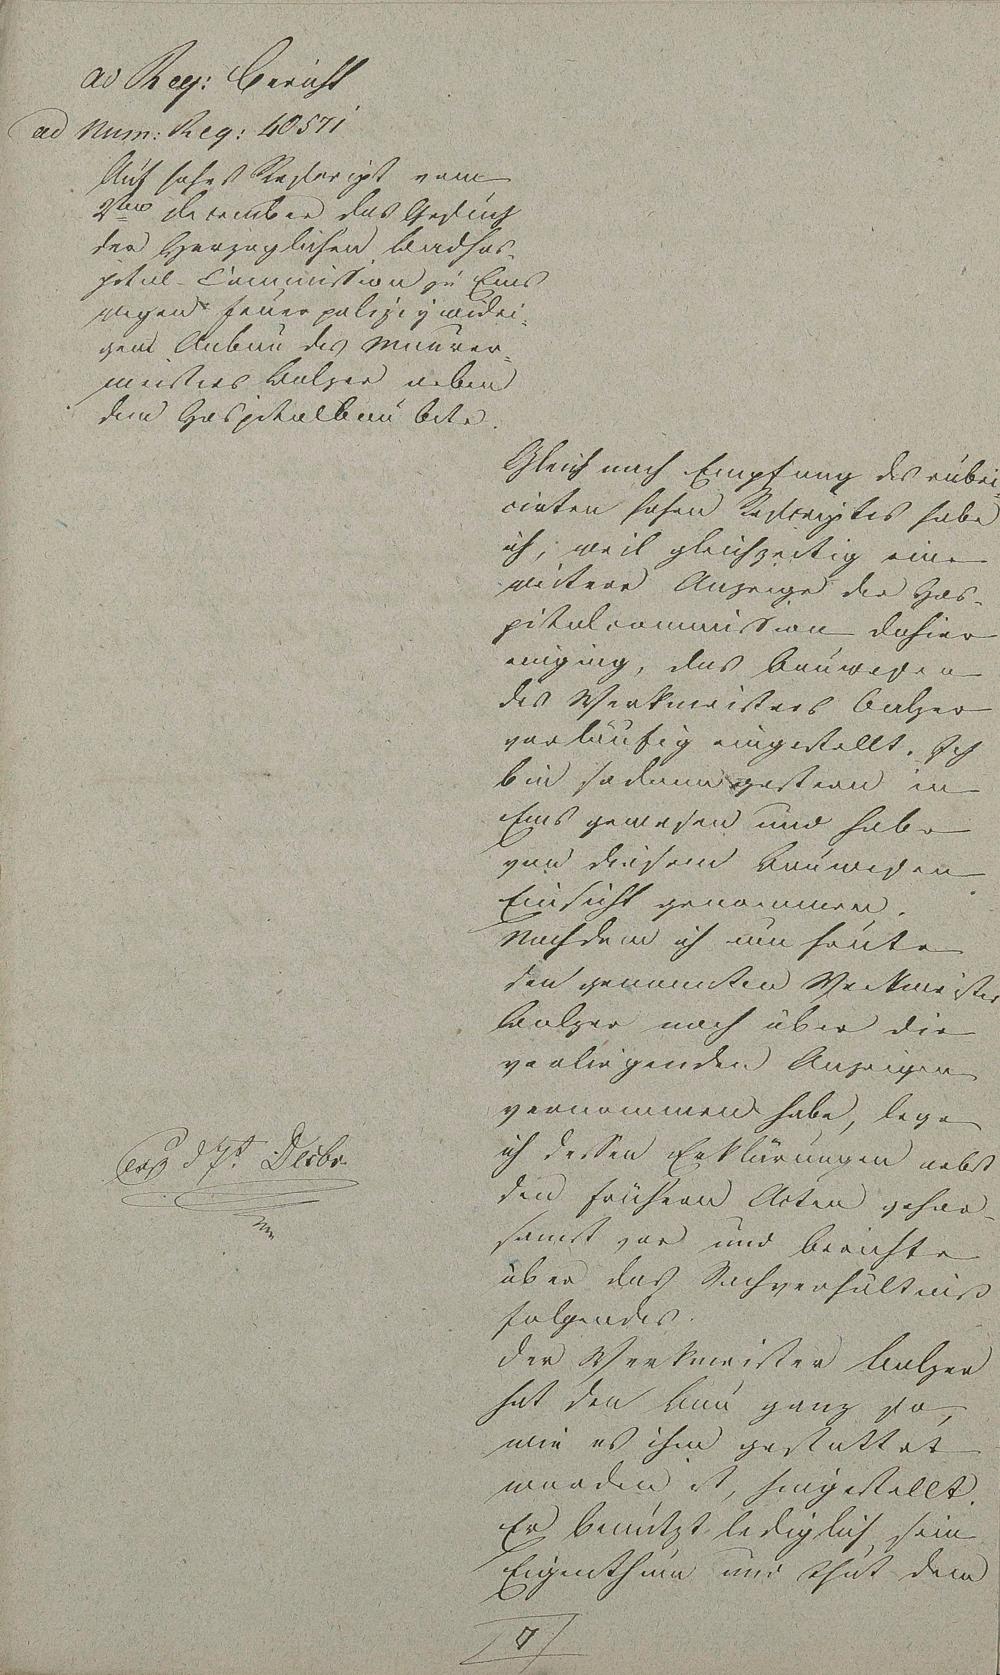 ad Reg: Bericht
ad Num: Reg: 40571
Auf hohes Rescript vom
2ten December das Gesuch
der Herzoglichen Badhos-
pital-Commission zu Ems
wegen feuerpolizeywidri-
gem Anbau des Maurer-
meisters Balzer neben
dem Hospitalbau betr.
Gleich nach Empfang des rubri-
cirten hohen Rescriptes habe
ich, weil gleichzeitig eine
weitere Anzeige der Hos-
pitalcommission dahier
einging, das Bauwesen
des Werkmeisters Balzer
vorläufig eingestellt. Ich
bin sodann gestern in
Ems gewesen und habe
von diesem Bauwesen
Einsicht genommen.
Nachdem ich nun heute
den genannten Werkmeister
Balzer noch über die
vorliegenden Anzeigen
vernommen habe, lege
ich dessen Erklärungen nebst
den frühern Acten gehor-
samst vor und berichte
über das Sachverhältniß
folgendes.
Der Werkmeister Balzer
hat den Bau ganz so,
wie es ihm gestattet
worden ist, hingestellt.
Er benutzt lediglich sein
Eigenthum und thut dem
exp d 7t. Decbr.